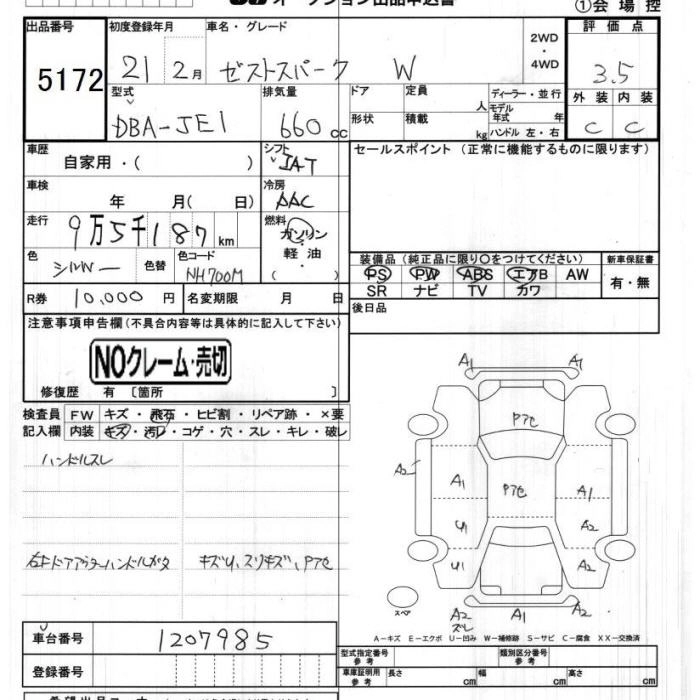 オークション出品申込書
①会場控
出品番号 5172
初度登録年月 21 2月
車名・グレード ゼストスパーク W
2WD・4WD
評価点 3.5
型式 DBA-JE1
排気量 660 cc
ドア 定員 人
ディーラー・並行
モデル年式 年
形状 積載 kg
ハンドル 左・右
外装 内装
C C
車歴 自家用・( )
シフト IAT
セールスポイント (正常に機能するものに限ります)
車検 年 月( 日)
冷房 AAC
走行 9万5千187 km
燃料 ガソリン・軽油・( )
色 シルバー 色替
色コード NH700M
装備品 (純正品に限り○をつけてください)
新車保証書
PS PW ABS エアB AW
有・無
SR ナビ TV カワ
R券 10,000 円
名変期限 月 日
後日品
注意事項申告欄 (不具合内容等は具体的に記入して下さい)
NOクレーム・売切
修復歴 有 〔箇所 〕
検査員 FW キズ・飛石・ヒビ割・リペア跡・×要
記入欄 内装 キズ・汚レ・コゲ・穴・スレ・キレ・破レ
ハンドルスレ
右ドアアウターハンドルガタ
キズU、スリキズ、Pアセ
A1 A1
Pアセ
A2 A1 Pアセ A1
U1 A2
U1 A2
スペア A2 A1 A2
ズレ
A－キズ E－エクボ U－凹み W－補修跡 S－サビ C－腐食 XX－交換済
車台番号 1207985
登録番号
型式指定番号 参考
類別区分番号 参考
車庫証明用 参考 長さ cm 幅 cm 高さ cm
希望出品コーナー